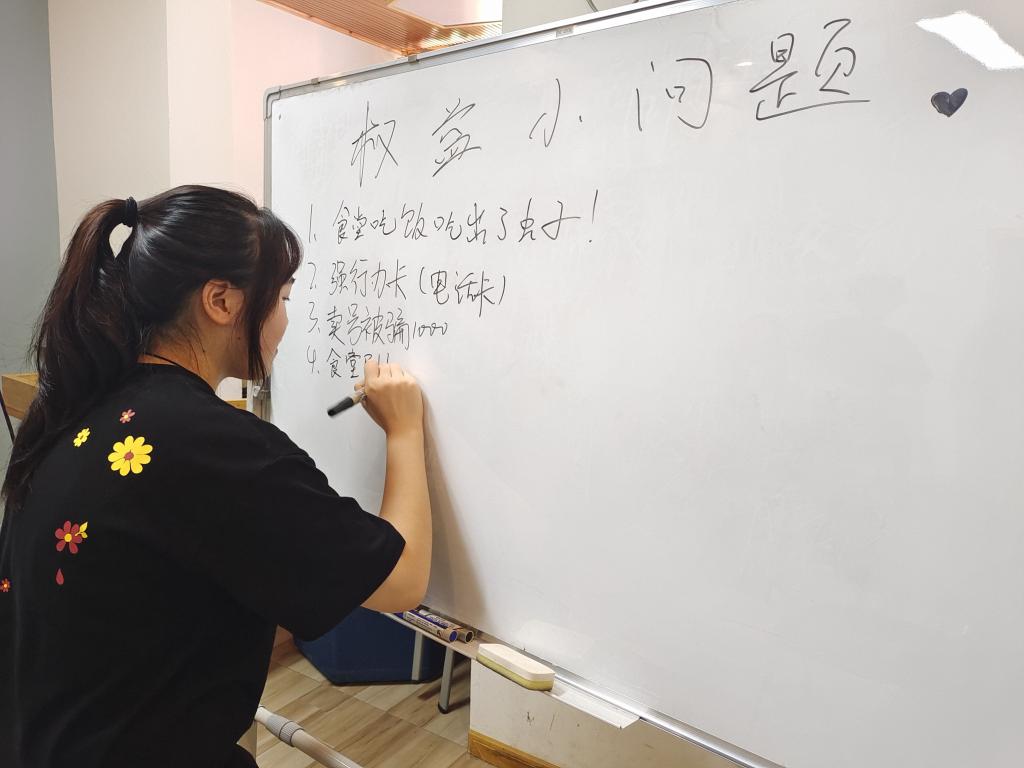 权益小问题
1. 食堂吃饭吃出了虫子!
2. 强行办卡(电话卡)
3. 卖号被骗1000
4. 食堂